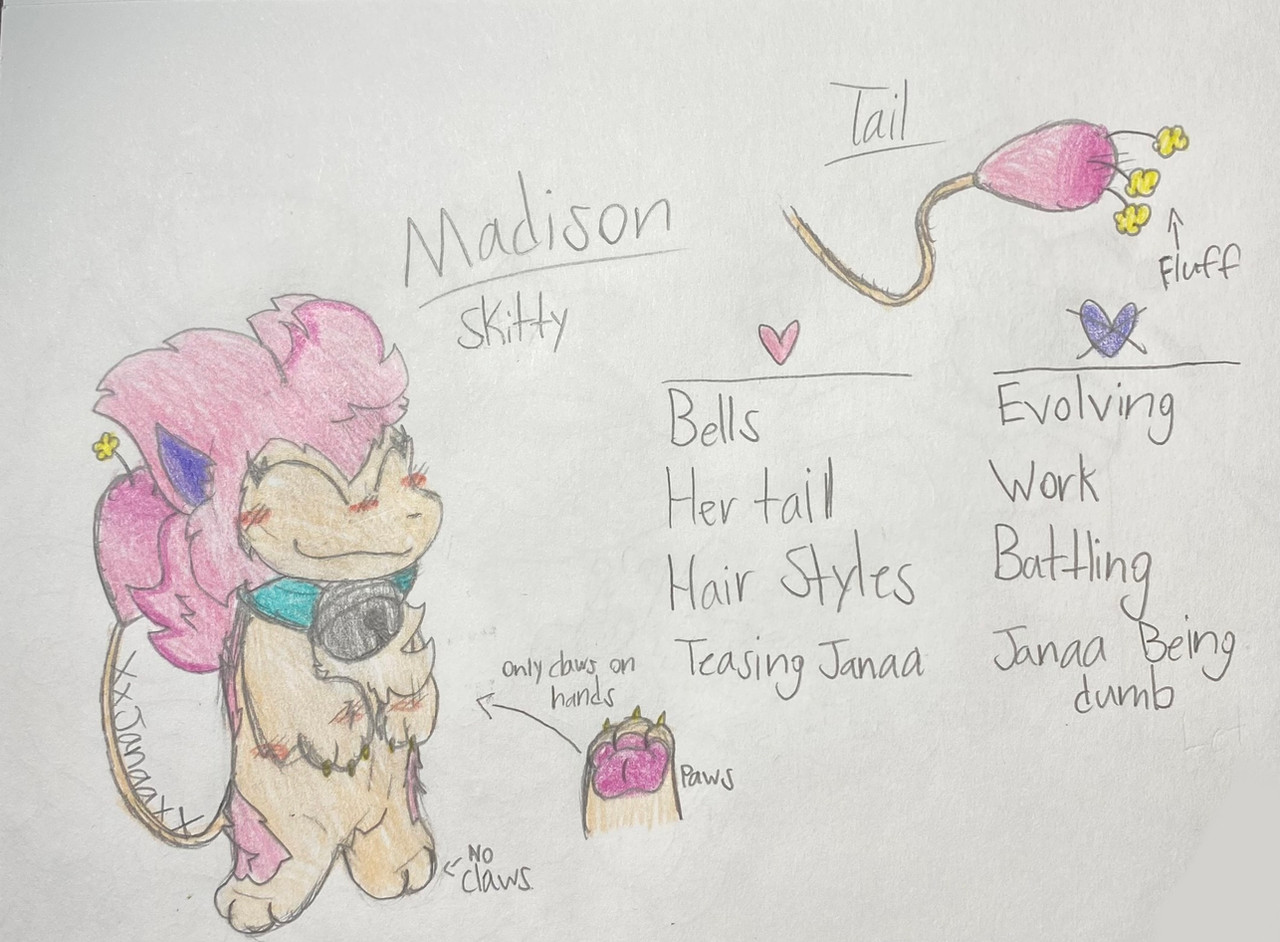 Tail
Madison
Skitty
Fluff
Bells
Her tail
Hair Styles
Teasing Janaa
Evolving
Work
Battling
Janaa Being
dumb
only claws on
hands
Paws
No
claws
xXJanaaXX